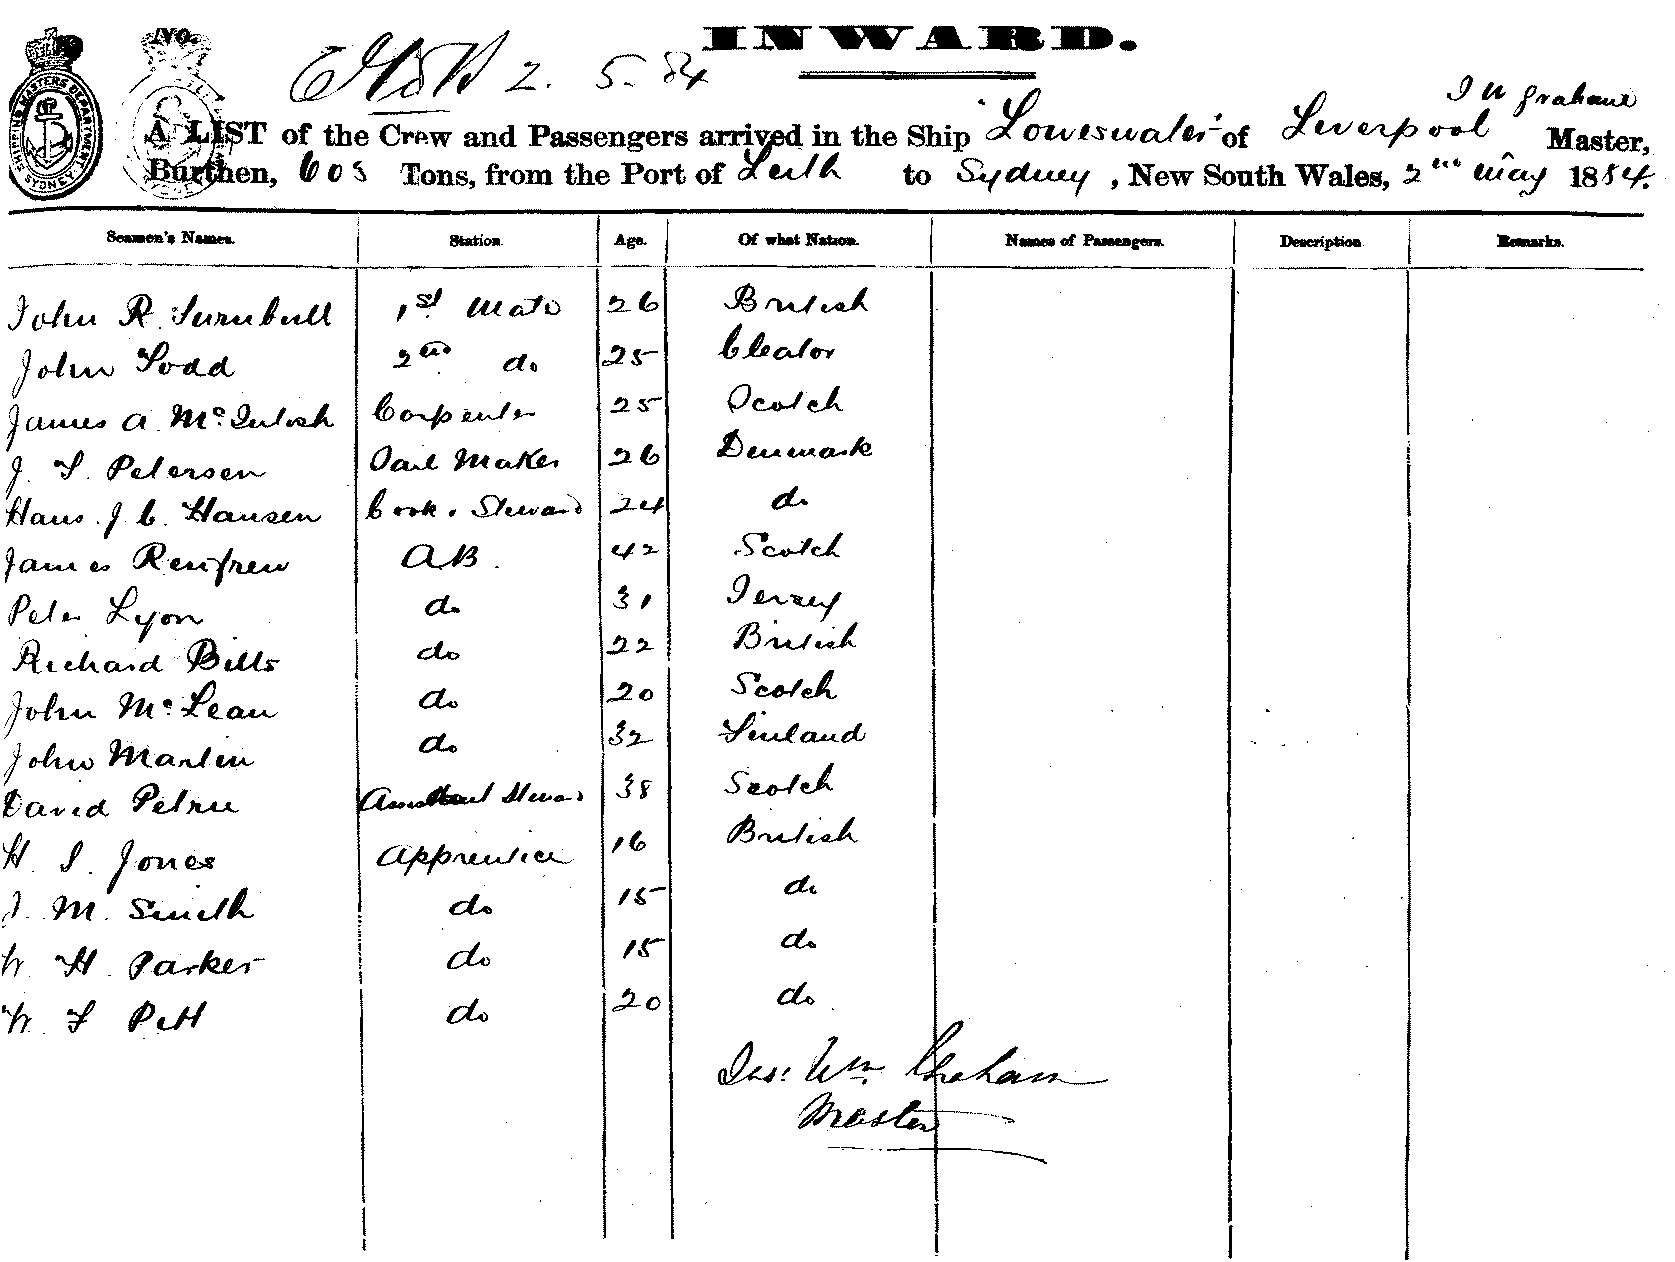 INWARD.
No.
SHIPPING MASTERS DEPARTMENT SYDNEY
2. 5. 84
J W Grahame
A LIST of the Crew and Passengers arrived in the Ship "Loweswater" of Liverpool Master,
Burthen, 603 Tons, from the Port of Leith to Sydney, New South Wales, 2nd May 1884.
Seamen's Names. Station. Age. Of what Nation. Names of Passengers. Description Remarks.
John R. Turnbull 1st Mate 26 British
John Todd 2nd do 25 Cleator
James A. McIntosh Carpenter 25 Scotch
J. T. Petersen Sail Maker 26 Denmark
Hans J. C. Hansen Cook & Steward 24 do
James Renfrew AB. 42 Scotch
Peter Lyon do 31 Jersey
Richard Bills do 22 British
John McLean do 20 Scotch
John Martin do 32 Finland
David Petrie Assistant Steward 38 Scotch
H. I. Jones Apprentice 16 British
J. M. Smith do 15 do
W. H. Parker do 15 do
W. T. Pitt do 20 do
Jas: Wm. Graham
Master